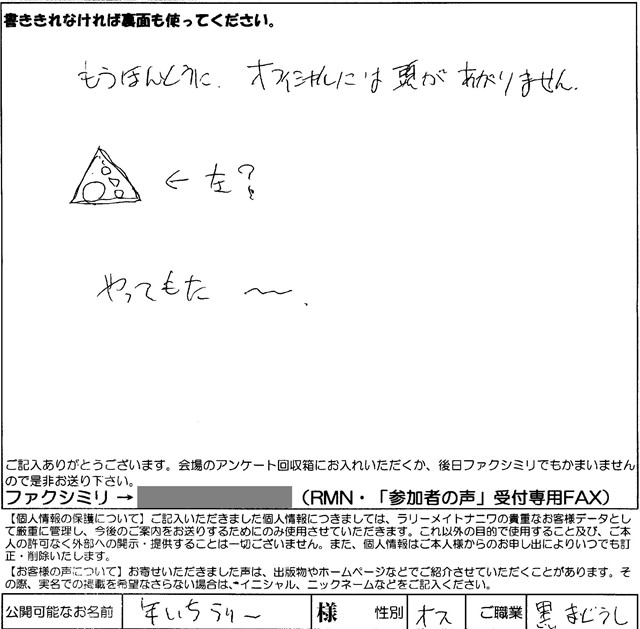 書ききれなければ裏面も使ってください。
もうほんとうに、オフィシャルには頭があがりません.
← 左?
やってもた 〜.
ご記入ありがとうございます。会場のアンケート回収箱にお入れいただくか、後日ファクシミリでもかまいません
ので是非お送り下さい。
ファクシミリ → （RMN・「参加者の声」受付専用FAX）
【個人情報の保護について】ご記入いただきました個人情報につきましては、ラリーメイトナニワの貴重なお客様データとし
て厳重に管理し、今後のご案内をお送りするためにのみ使用させていただきます。これ以外の目的で使用すること及び、ご本
人の許可なく外部への開示・提供することは一切ございません。また、個人情報はご本人様からのお申し出によりいつでも訂
正・削除いたします。
【お客様の声について】お寄せいただきました声は、出版物やホームページなどでご紹介させていただくことがあります。そ
の際、実名での掲載を希望なさらない場合は、イニシャル、ニックネームなどをご記入ください。
公開可能なお名前 年いちラリー 様 性別 オス ご職業 黒まどうし